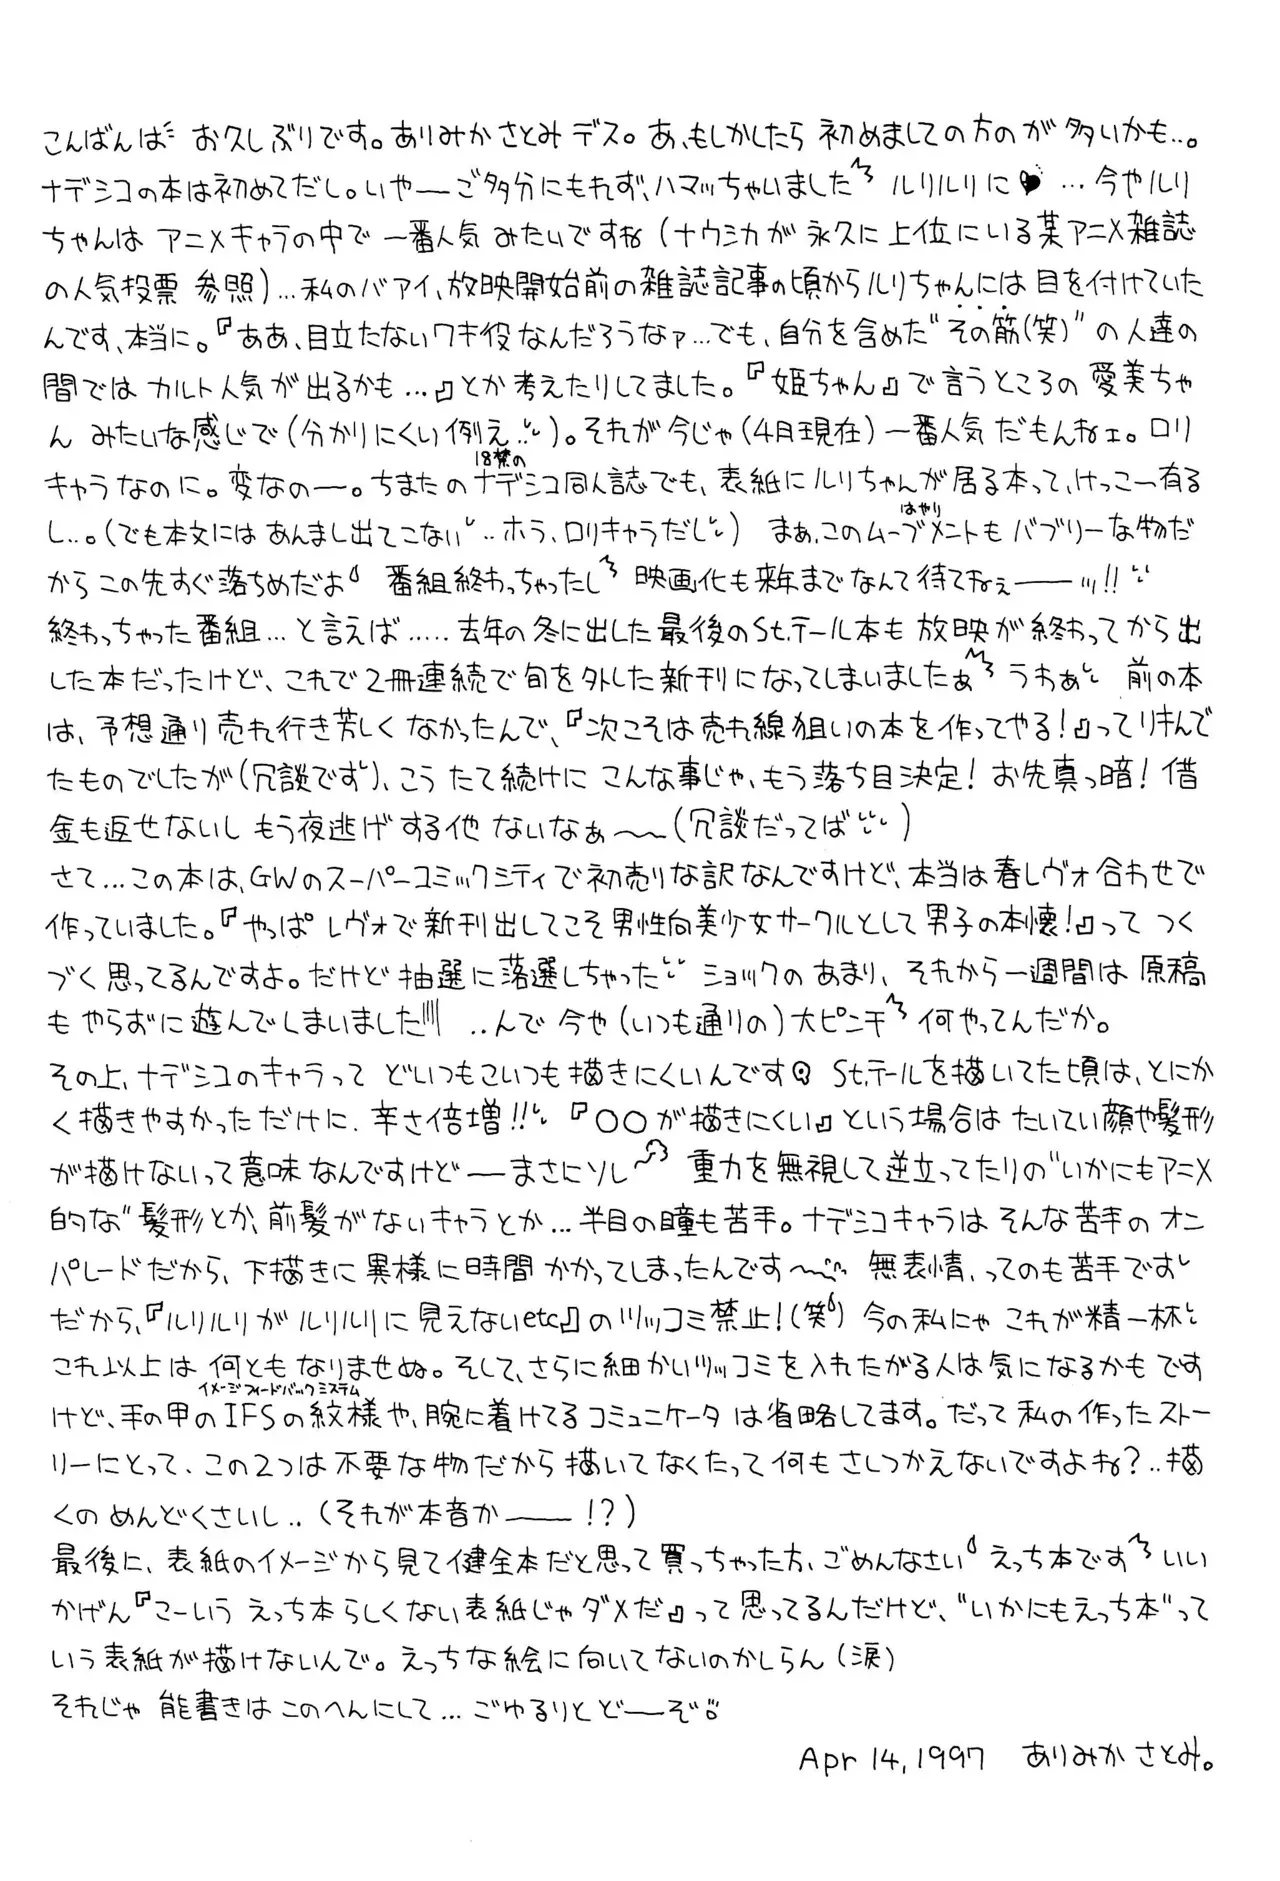 こんばんは お久しぶりです。ありみかさとみデス。あ、もしかしたら初めましての方のが多いかも…。
ナデシコの本は初めてだし。いやーご多分にもれず、ハマッちゃいました ルリルリに♥ …今やルリ
ちゃんは アニメキャラの中で 一番人気 みたいですね(ナウシカが 永久に上位にいる某アニメ雑誌
の人気投票 参照)…私のバアイ、放映開始前の雑誌記事の頃からルリちゃんには目を付けていた
んです、本当に。『ああ、目立たないワキ役なんだろうなァ…でも、自分を含めた"その筋(笑)"の人達の
間では カルト人気が出るかも…』とか考えたりしてました。『姫ちゃん』で言うところの 愛美ちゃ
ん みたいな感じで(分かりにくい例え…)。それが今じゃ(4月現在)一番人気だもんねェ。ロリ
キャラなのに。変なのー。ちまたの18禁のナデシコ同人誌でも、表紙にルリちゃんが居る本って、けっこー有る
し…。(でも本文にはあんまし出てこない‥ホラ、ロリキャラだし) まぁ、このムーブメント(はやり)もバブリーな物だ
からこの先すぐ落ちめだよ 番組終わっちゃったし 映画化も来年までなんて待てねぇーーッ!!
終わっちゃった番組…と言えば……去年の冬に出した最後のSt.テール本も 放映が終わってから出
した本だったけど、これで2冊連続で旬を外した新刊になってしまいましたぁ うわぁ 前の本
は、予想通り売れ行き芳しくなかったんで、『次こそは売れ線狙いの本を作ってやる!』ってリキんで
たものでしたが(冗談です)、こう たて続けに こんな事じゃ、もう落ち目決定!お先真っ暗!借
金も返せないし もう夜逃げする他ないなぁ〜〜(冗談だってば)
さて…この本は、GWのスーパーコミックシティで初売りな訳なんですけど、本当は春レヴォ合わせで
作っていました。『やっぱ レヴォで新刊出してこそ男性向美少女サークルとして男子の本懐!』って つく
づく思ってるんですよ。だけど抽選に落選しちゃった ショックのあまり、それから一週間は原稿
もやらずに遊んでしまいました ‥んで 今や(いつも通りの)大ピンチ 何やってんだか。
その上、ナデシコのキャラって どいつもこいつも描きにくいんです St.テールを描いてた頃は、とにか
く描きやすかっただけに、辛さ倍増!!『○○が描きにくい』という場合はたいてい顔や髪形
が描けないって意味なんですけどーまさにソレ 重力を無視して逆立ってたりの"いかにもアニメ
的な"髪形とか、前髪がないキャラとか…半目の瞳も苦手。ナデシコキャラは そんな苦手のオン
パレードだから、下描きに異様に時間かかってしまったんです〜 無表情、ってのも苦手です
だから、『ルリルリがルリルリに見えないetc』のツッコミ禁止!(笑)今の私にゃこれが精一杯
これ以上は何ともなりませぬ。そして、さらに細かいツッコミを入れたがる人は気になるかもです
けど、手の甲のIFS(イメージフィードバックシステム)の紋様や、腕に着けてるコミュニケータは省略してます。だって私の作ったストー
リーにとって、この2つは不要な物だから描いてなくたって何もさしつかえないですよね?‥描
くのめんどくさいし‥(それが本音かーー!?)
最後に、表紙のイメージから見て健全本だと思って買っちゃった方、ごめんなさい えっち本です いい
かげん『こーいう えっち本らしくない表紙じゃダメだ』って思ってるんだけど、"いかにもえっち本"って
いう表紙が描けないんで。えっちな絵に向いてないのかしらん(涙)
それじゃ 能書きはこのへんにして…ごゆるりとどーぞ
Apr 14,1997 ありみかさとみ。